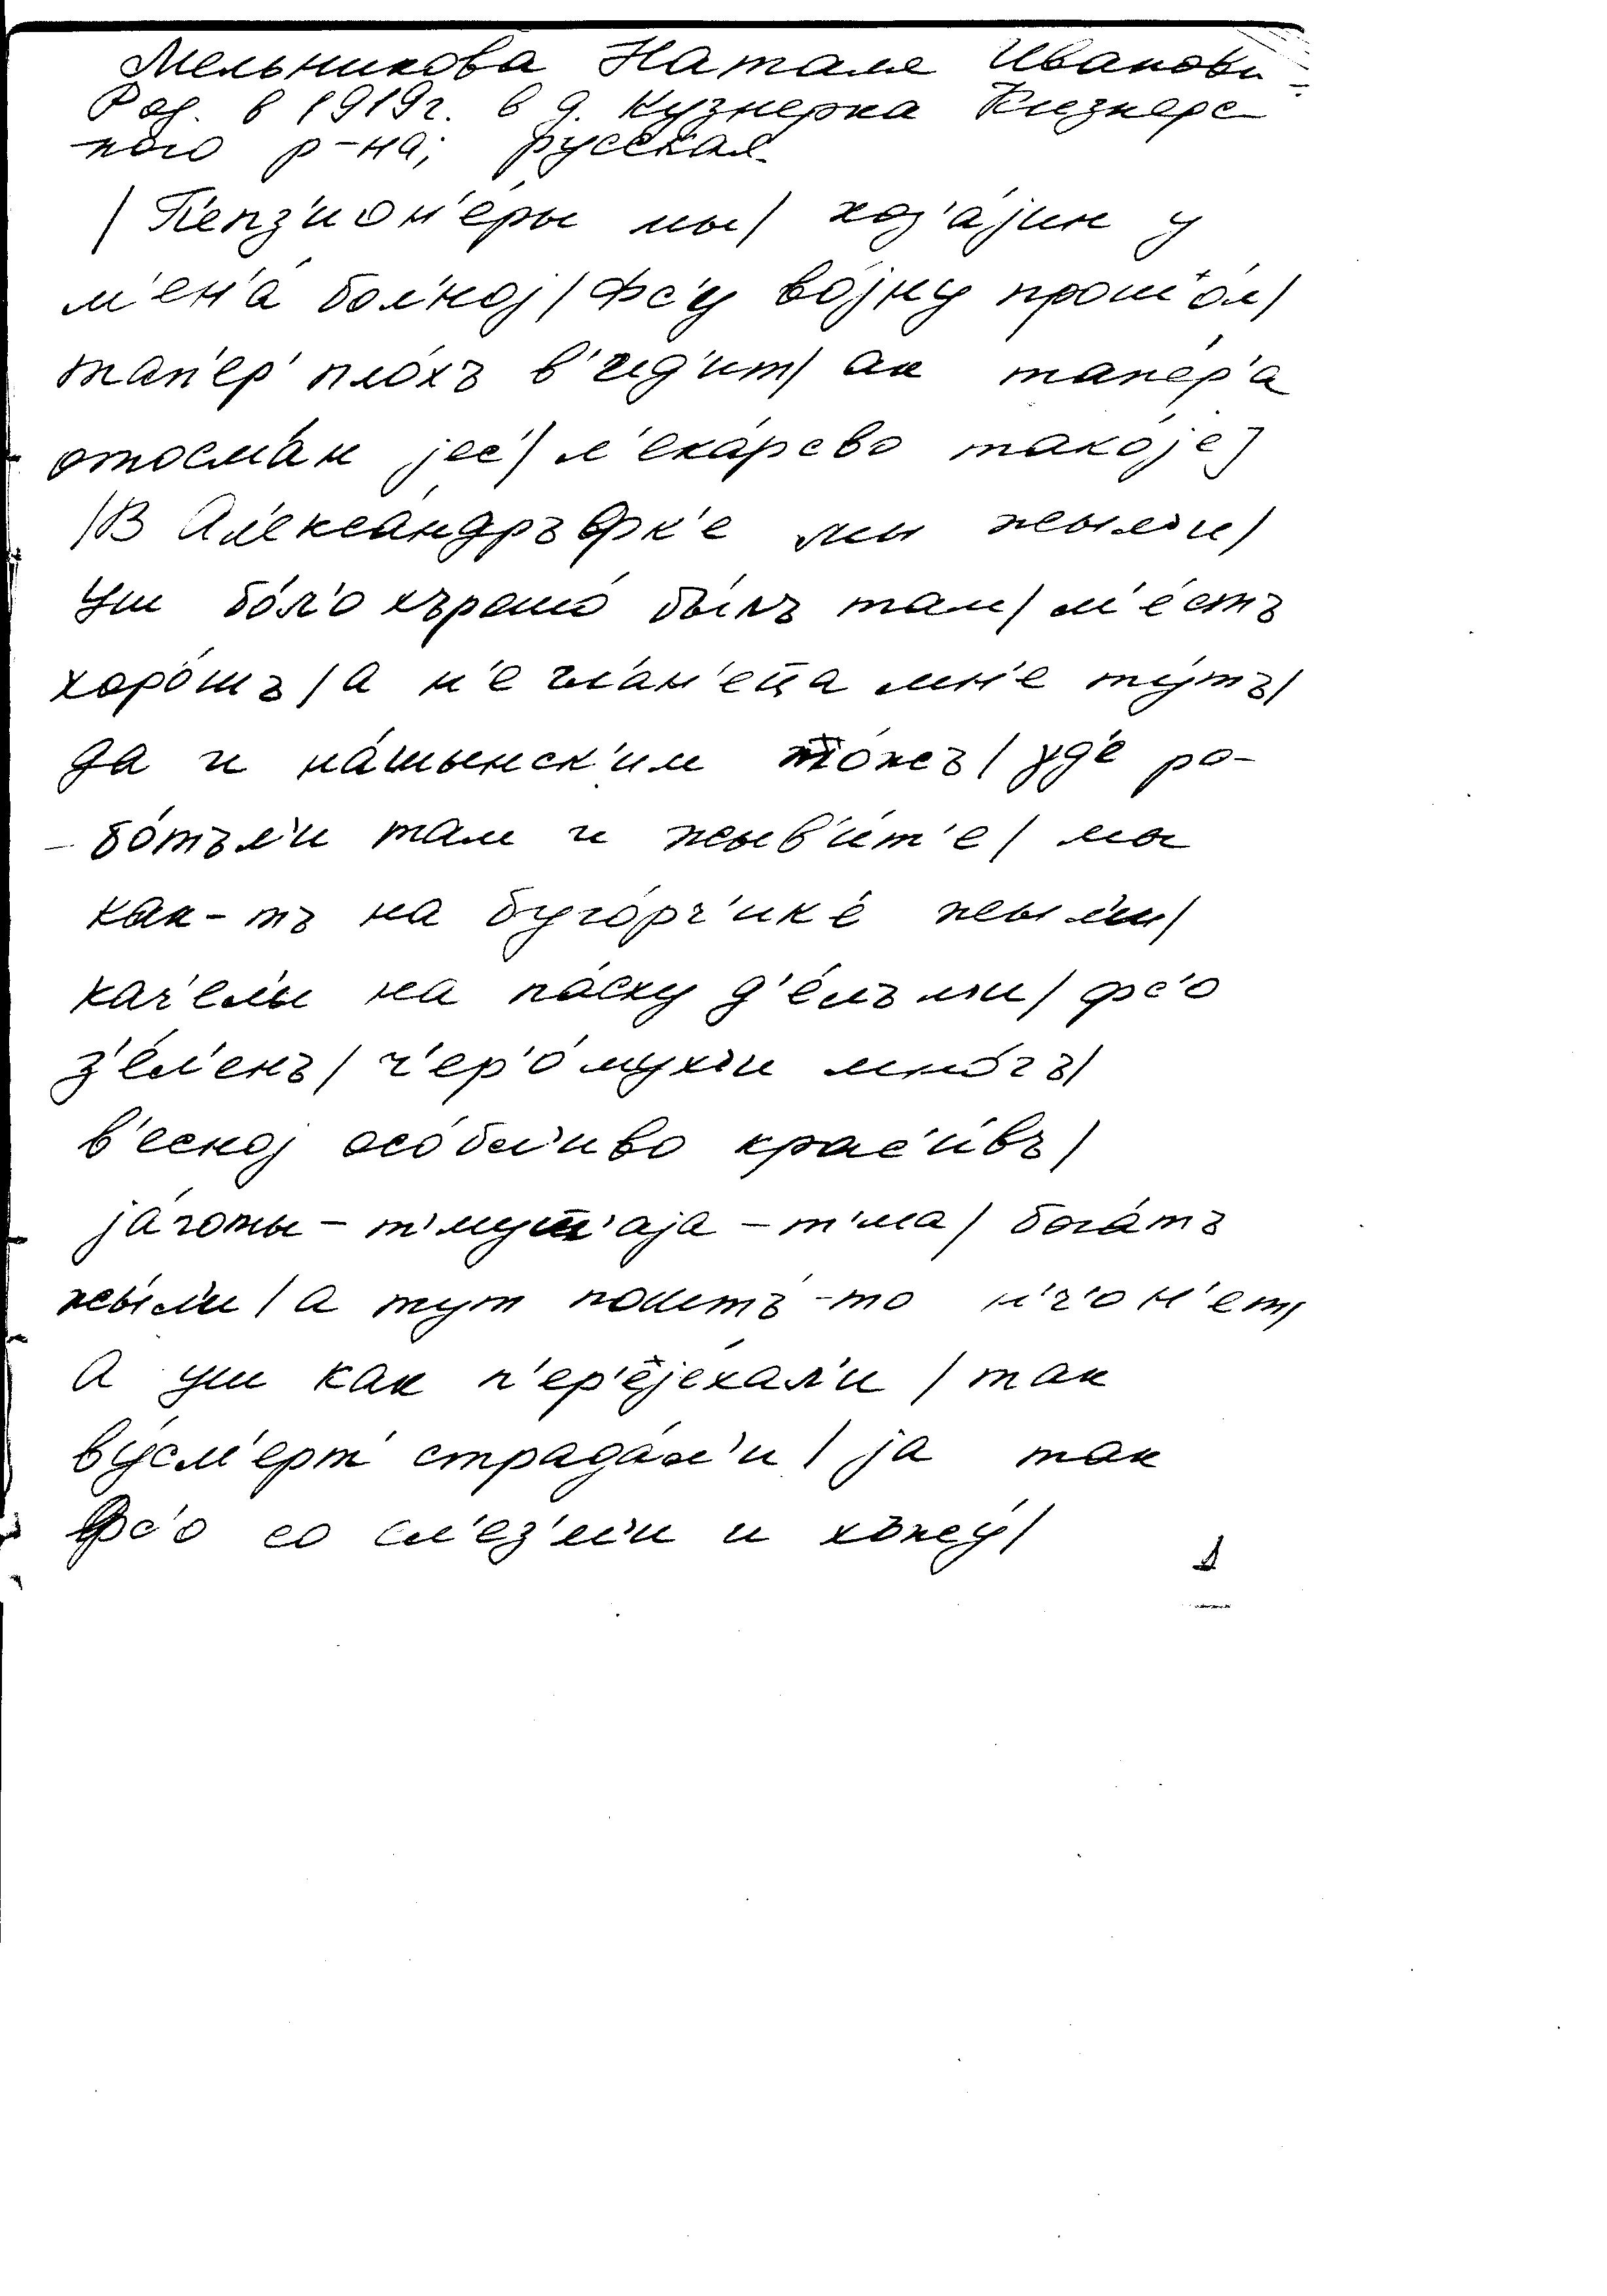 Мельникова Наталя Ивановн-
Род. в 1919г. в д. Кузнерка Кизнерс-
кого р-на; русская.
/ П'енз'ион'е́ры мы/ хоз'а́јин у
м'ен'а́ бол'но́ј/ фс'у во́јну прош'о́л/
тап'ер' пло́хъ в'и́д'ит/ ак тапе́р'а
отосма́н јес'/ л'ека́рсво тако́је]
/В Ал'екса́ндръфк'е мы жы́л'и/
уш бо́л'о хърашо́ бы́лъ там/ м'е́стъ
хоро́шъ/ а н'е гл'а́н'еца мн'е ту́тъ/
да и на́шынск'им то́жъ/ γд'е ро-
- бо́тъл'и там и жыв'и́т'е/ мы
как-тъ на буго́рч'ик'е жы́л'и/
кач'е́л'ы на па́ску д'е́лъл'и/ фс'о
з'е́л'енъ/ ч'ер'о́мух'и мно́гъ/
в'есно́ј осо́бл'иво крас'и́въ/
ја́годы - т'мут'а́јa - т'ма/ бога́тъ
жы́л'и/ а тут покътъ-то н'ч'о н'ет/
А уш как п'ер'е́јехал'и / так
ву́см'ерт' страда́л'и/ ја так
фс'о со сл'ез'м'и и хъжу́/
1